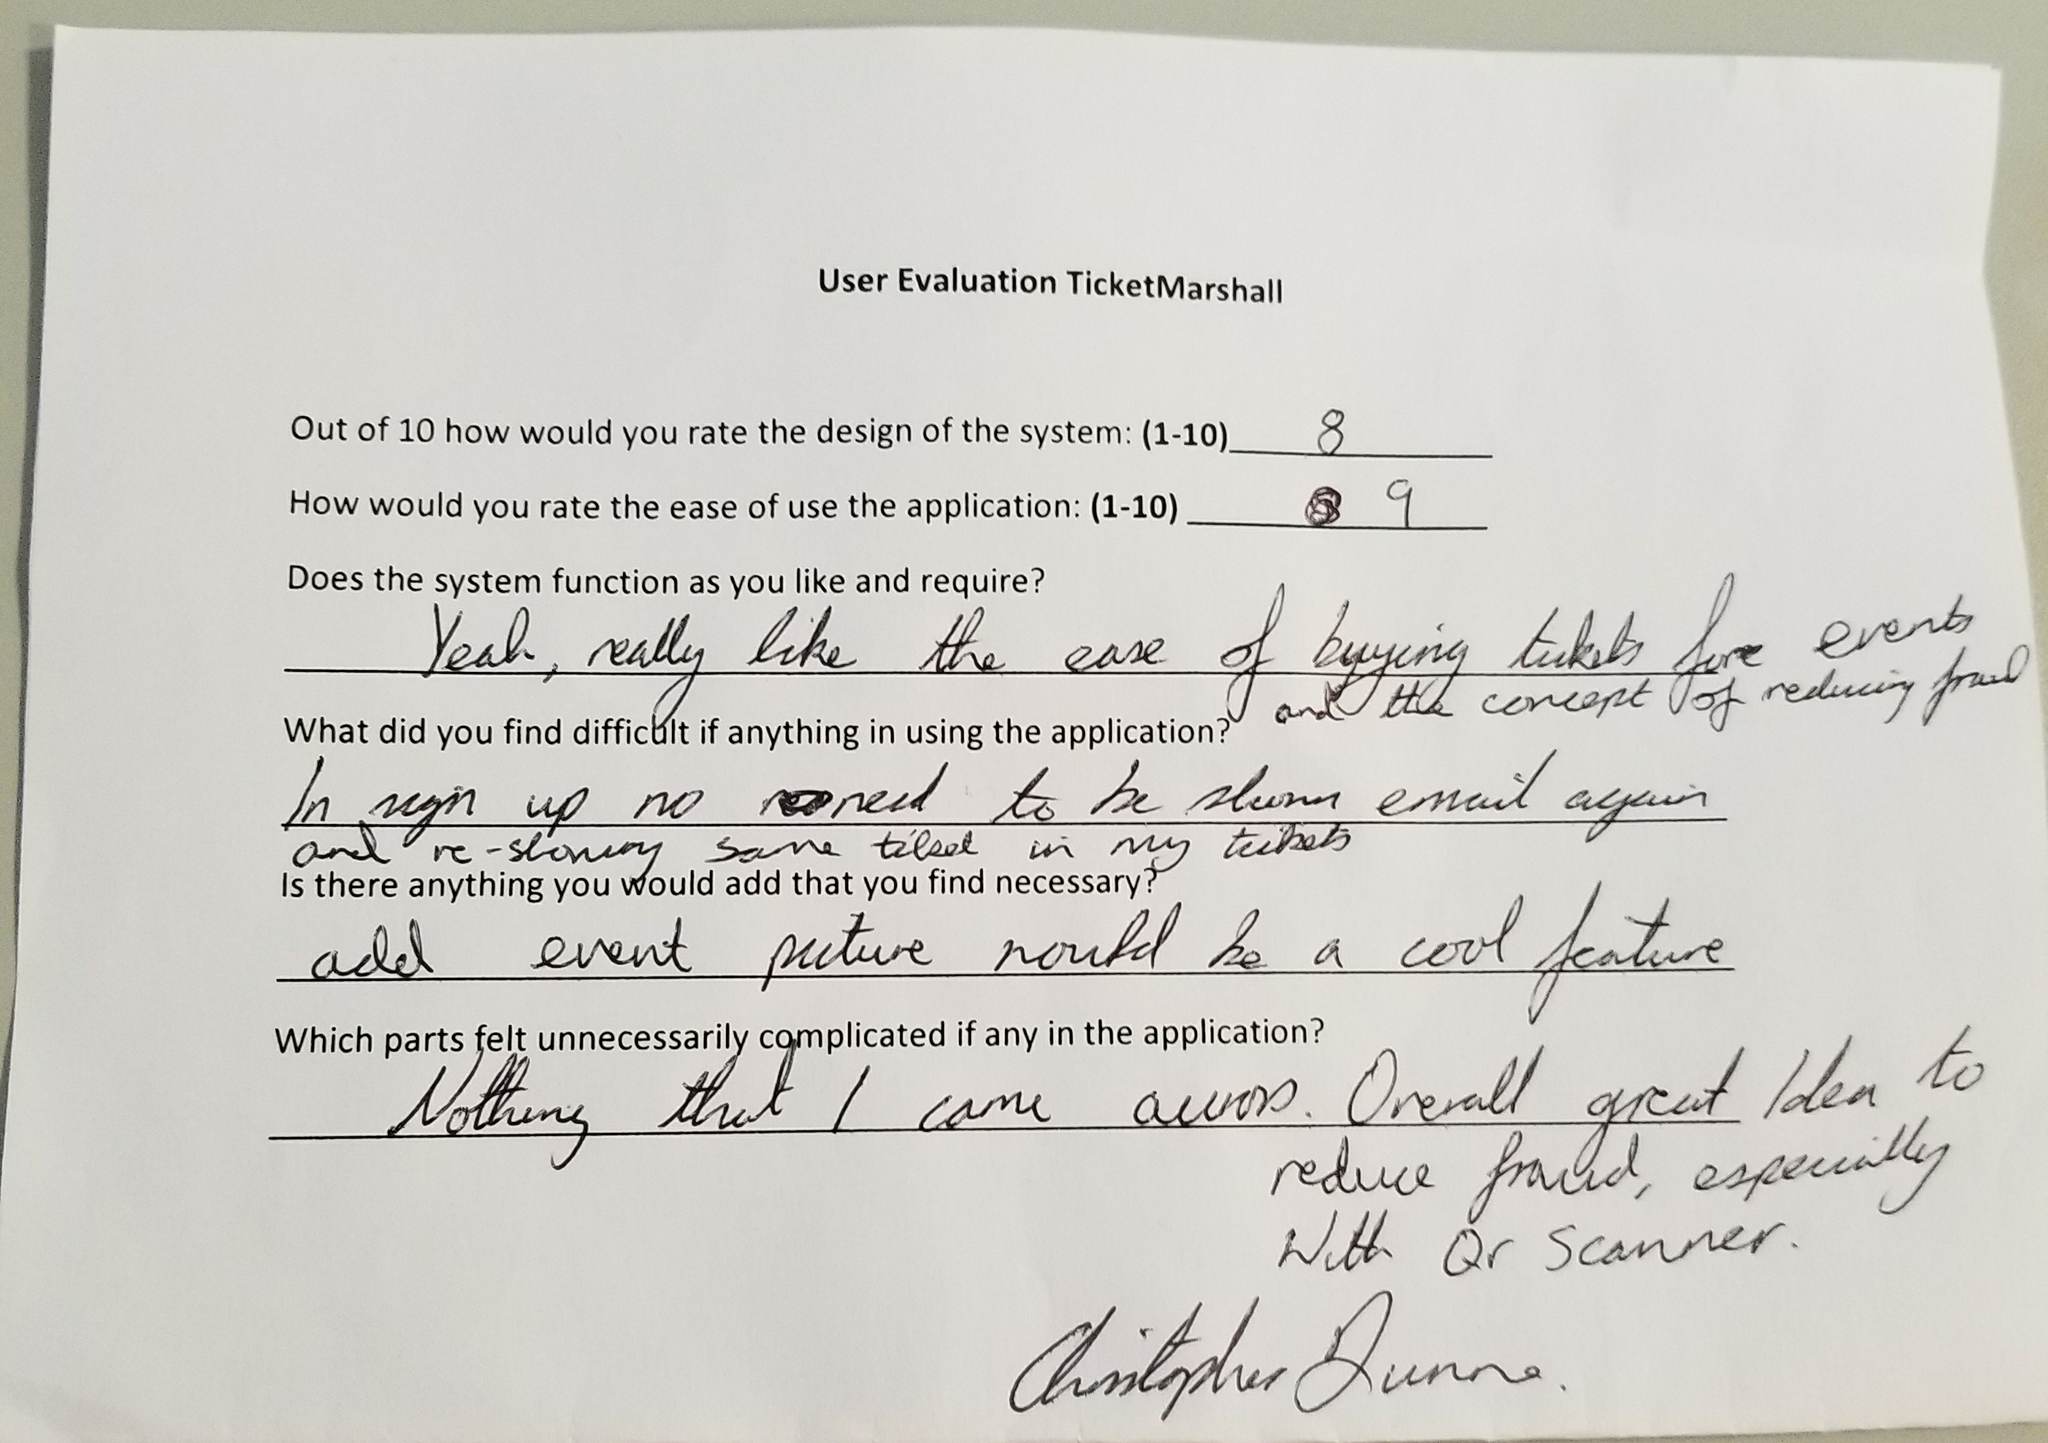 User Evaluation TicketMarshall
Out of 10 how would you rate the design of the system: (1-10) 8
How would you rate the ease of use the application: (1-10) 9
Does the system function as you like and require?
Yeah, really like the ease of buying tickets for events
and the concept of reducing fraud
What did you find difficult if anything in using the application?
In sign up no need to be shown email again
and re-showing same ticket in my tickets
Is there anything you would add that you find necessary?
add event picture would be a cool feature
Which parts felt unnecessarily complicated if any in the application?
Nothing that I came across. Overall great Idea to
reduce fraud, especially
With Qr Scanner.
Christopher Dunne.